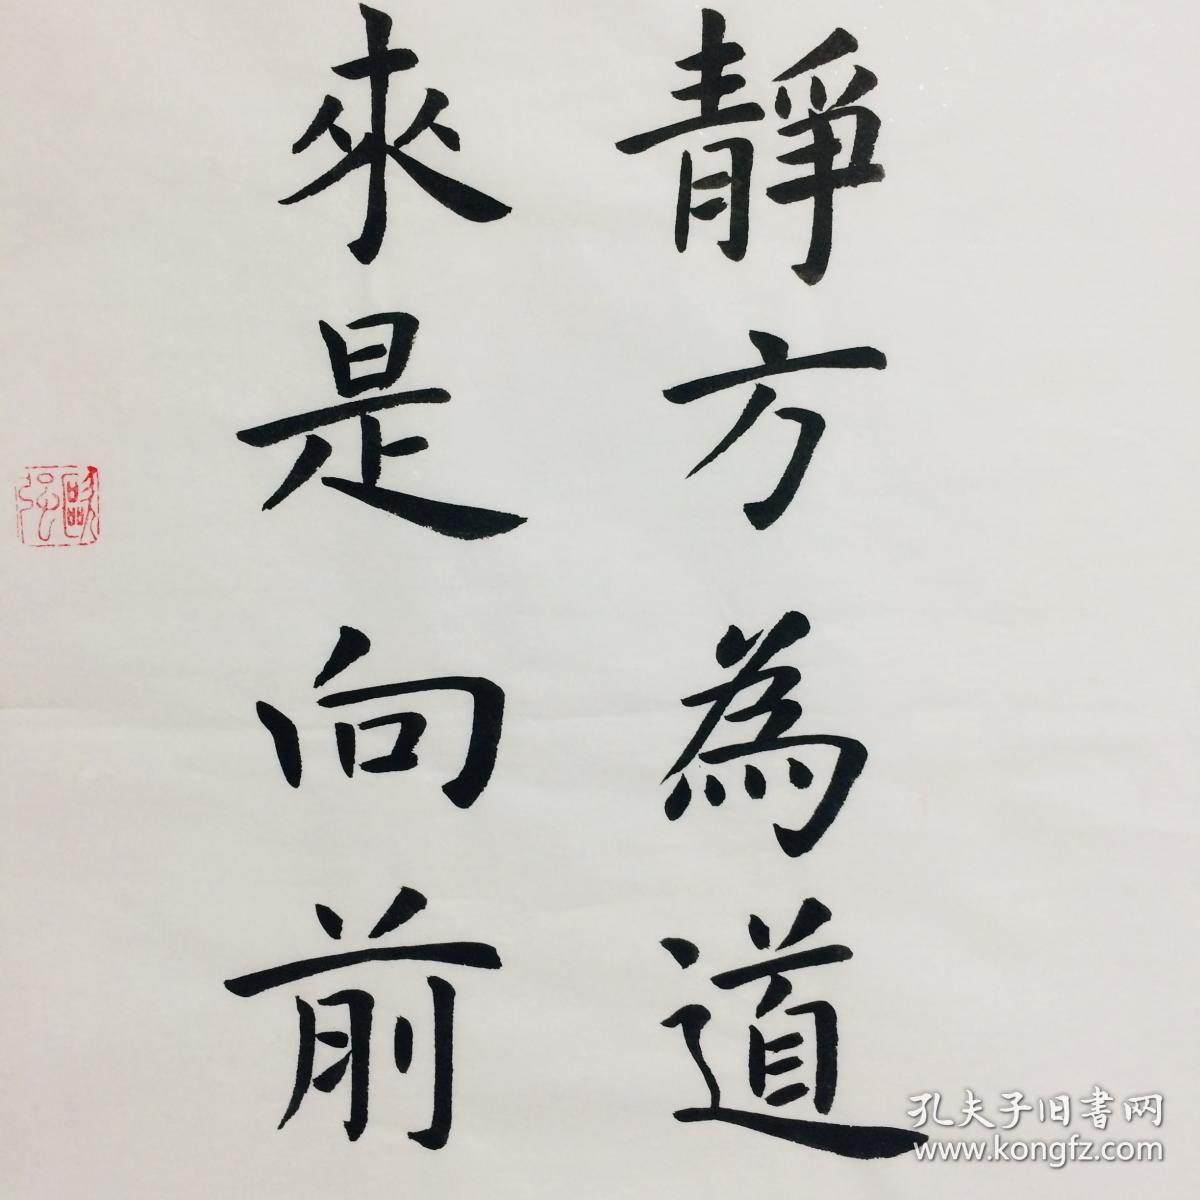 靜方為道
來是向前
歐弘
孔夫子旧書网
www.kongfz.com